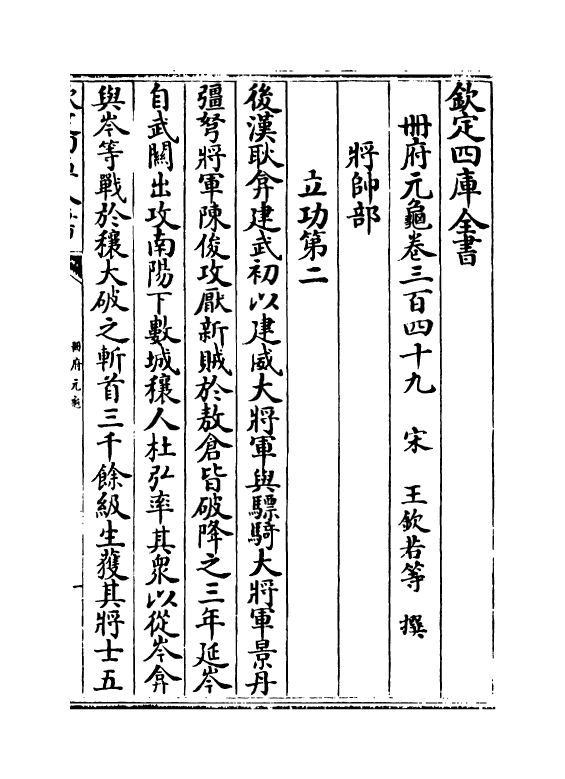 欽定四庫全書
冊府元龜卷三百四十九 宋 王欽若等 撰
將帥部
立功第二
後漢耿弇建武初以建威大將軍與驃騎大將軍景丹
彊弩將軍陳俊攻厭新賊於敖倉皆破降之三年延岑
自武關出攻南陽下數城穰人杜弘率其衆以從岑弇
與岑等戰於穰大破之斬首三千餘級生獲其將士五
冊府元龜
一